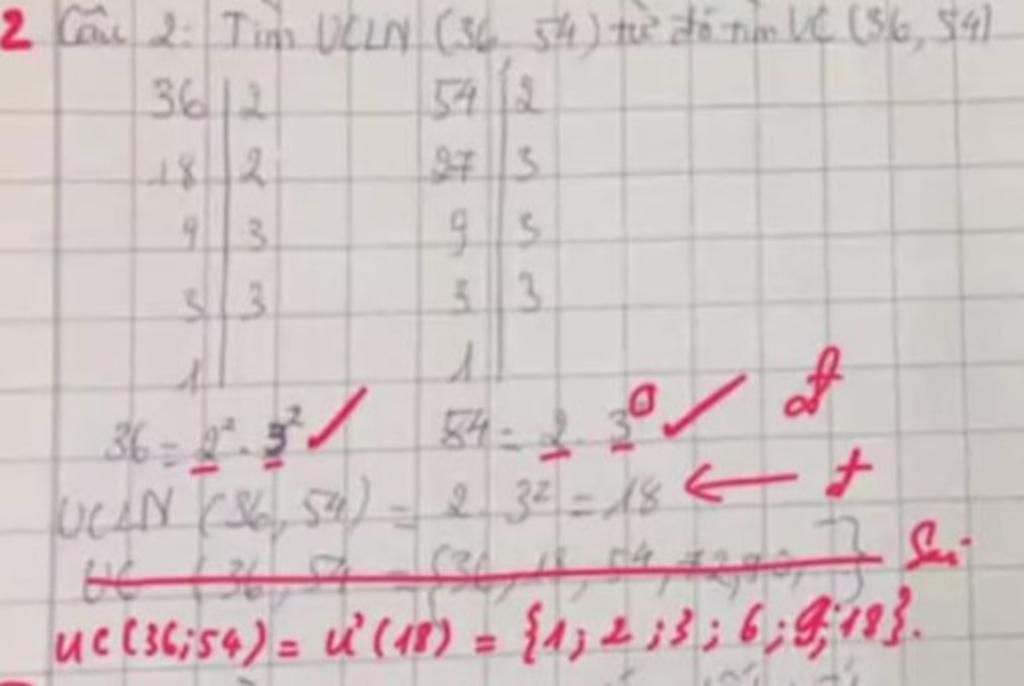 2 Câu 2: Tìm UCLN (36, 54) từ đó tìm UC (36, 54)
36 | 2 54 | 2
18 | 2 27 | 3
9 | 3 9 | 3
3 | 3 3 | 3
1 1
36 = 2² · 3² 54 = 2 · 3 đ
UCLN (36, 54) = 2 · 3² = 18 ←
UC (36, 54 = {36, 18, 54, 72, 90, } Sai
UC(36;54) = Ư(18) = {1; 2; 3; 6; 9; 18}.